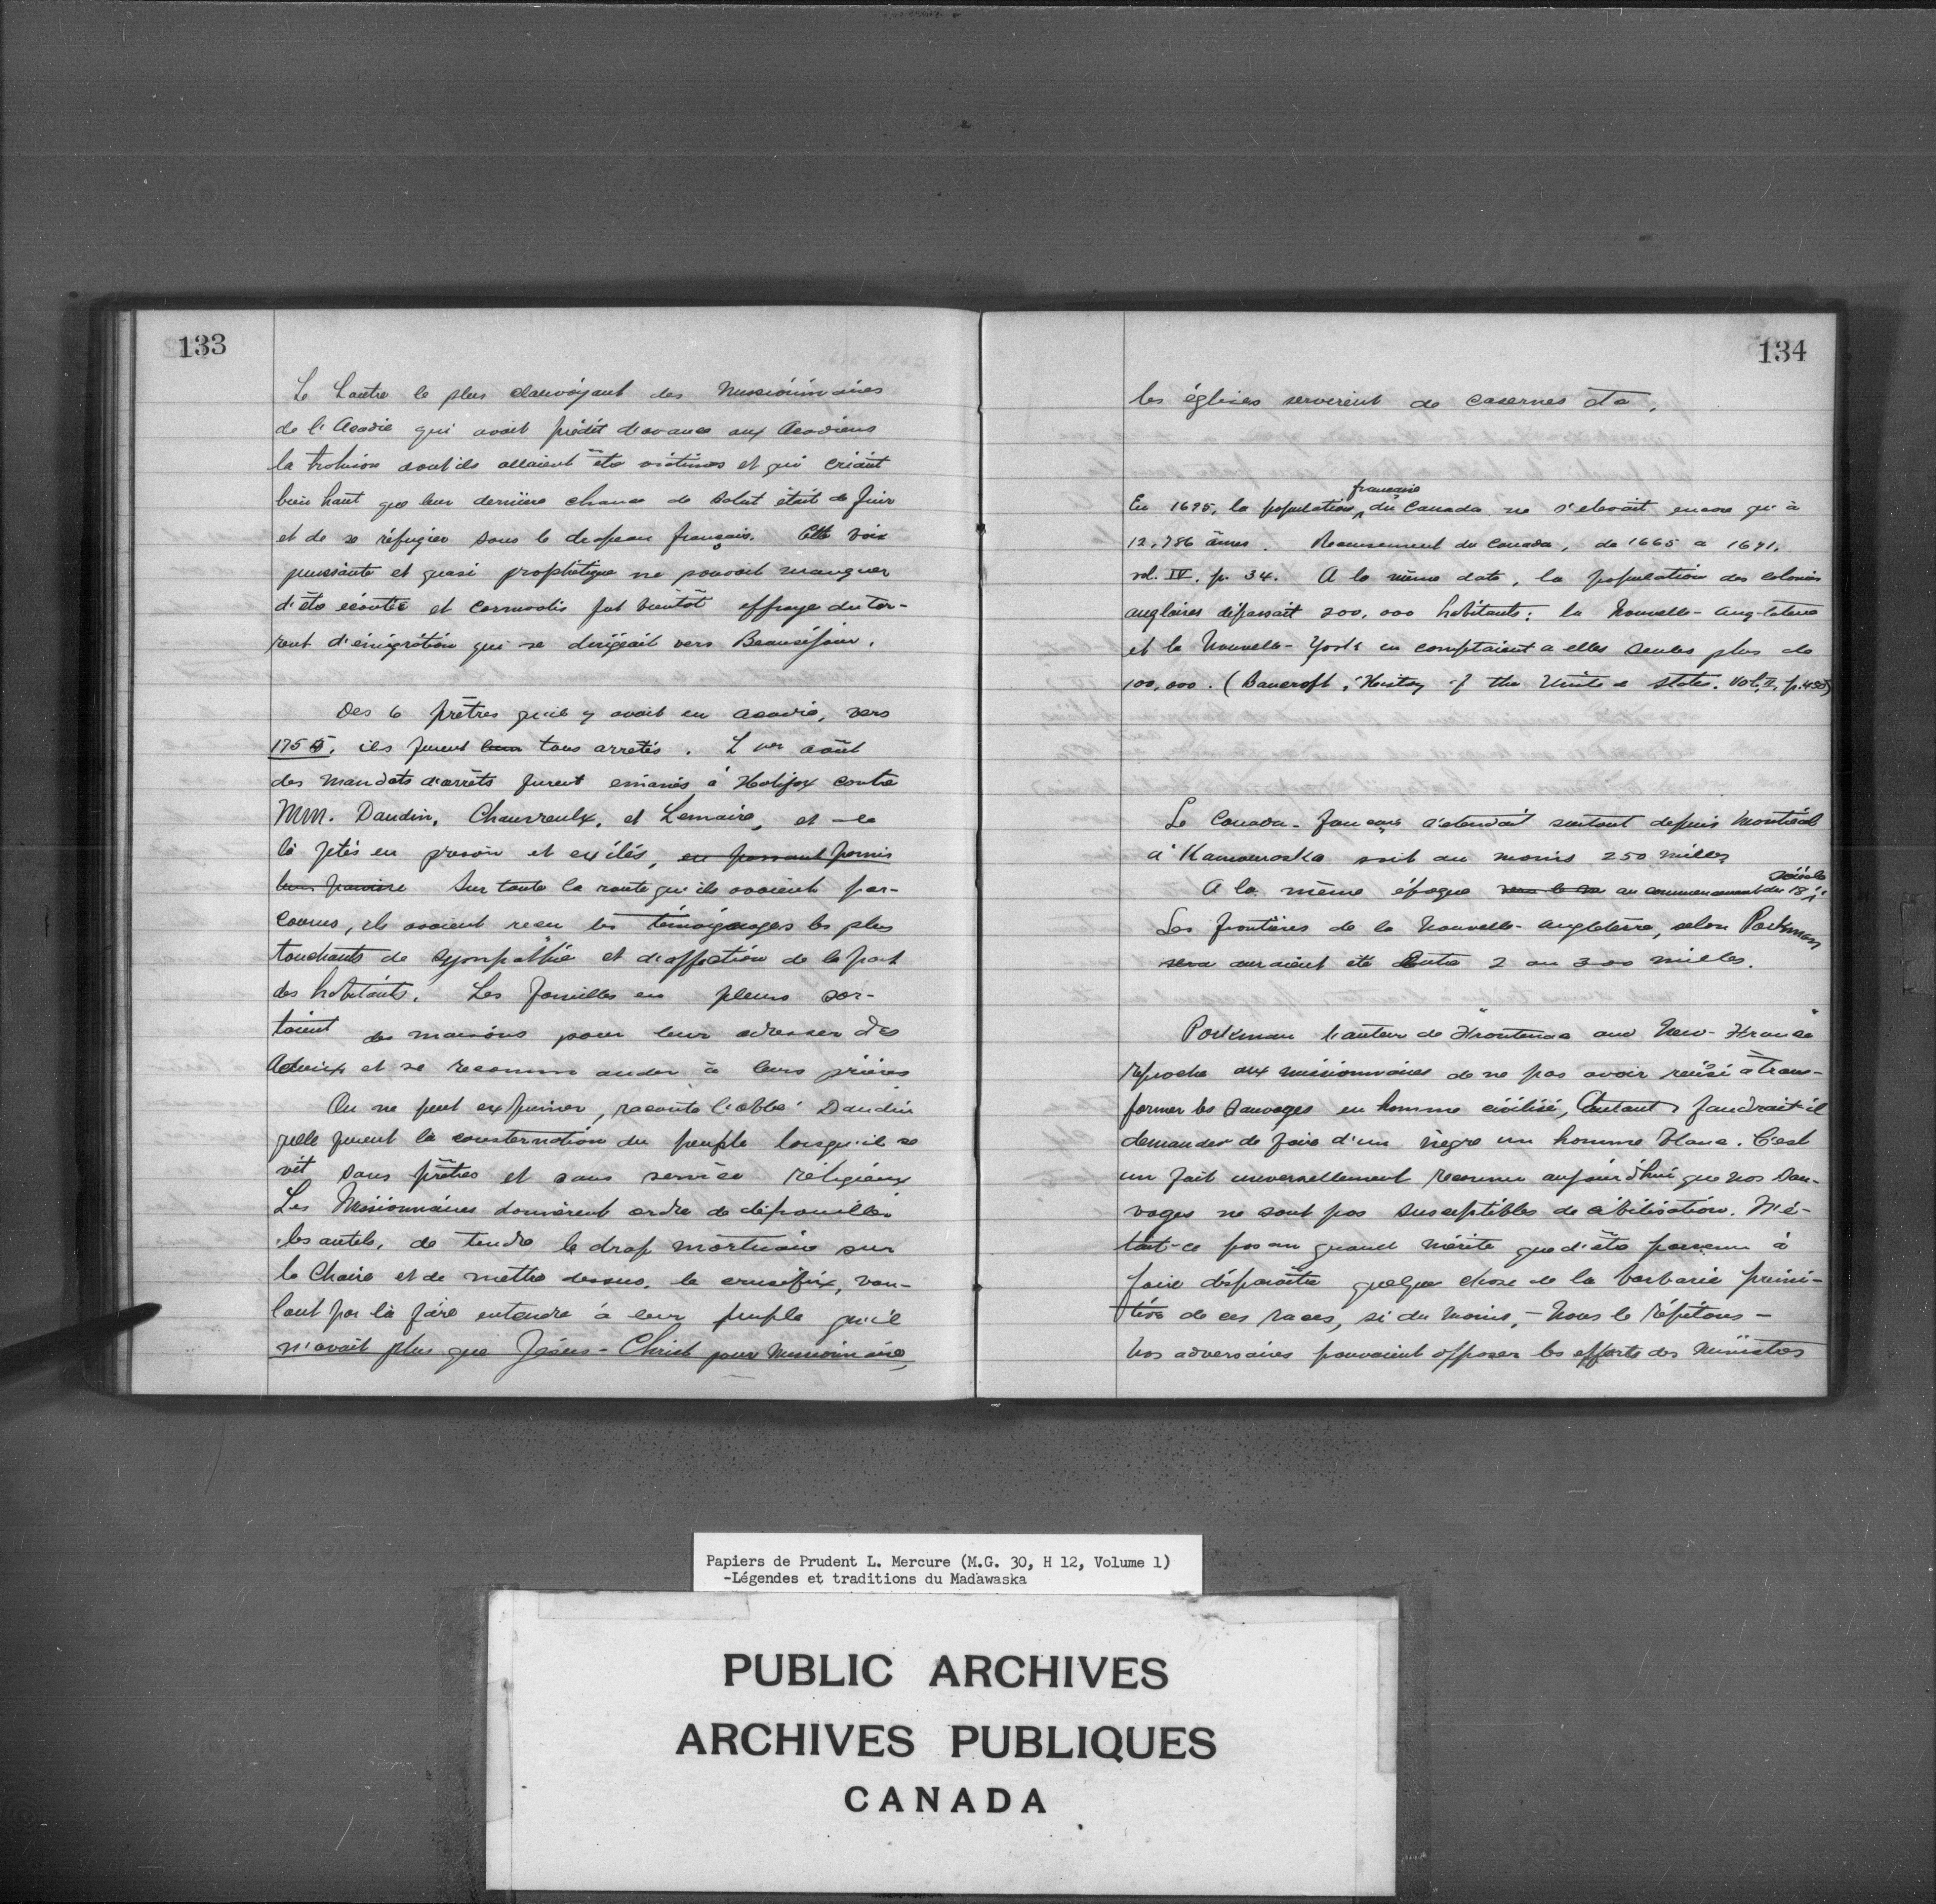 133
Le Loutre le plus clairvoyant des Missionnaires
de l'Acadie qui avait prédit d'avance aux Acadiens
la trahison dont ils allaient être victimes et qui criait
bien haut que leur dernière chance de salut était de fuir
et de se réfugier sous le drapeau français. Cette voix
puissante et quasi prophétique ne pouvait manquer
d'être écoutée et Cornwalis fut bientôt effrayé du tor-
rent d'émigration qui se dirigeait vers Beauséjour.
Des 6 prêtres qu'il y avait en Acadie, vers
1755, ils furent tous arretés. L 1er août
des mandats d'arrêts furent émanés à Halifax contre
MM. Daudin, Chauvreulx, et Lemaire, et de
là jetés en prison et exilés, en passant parmis
leur paroisse Sur toute la route qu'ils avaient par-
courus, ils avaient reçu les témoignages les plus
touchants de sympathie et d'affection de la part
des habitants. Les familles en pleurs sor-
taient des maisons pour leur adresser des
Adieux et se recommander à leurs prières
On ne peut exprimer, raconte l'abbé Daudin
quelle furent la consternation du peuple lorsqu'il se
vit sans prêtres et sans service religieux
Les Missionnaires donnèrent ordre de dépouiller
les autels, de tendre le drap mortuaire sur
la Chaire et de mettre dessus le crucifix, vou-
lant par là faire entendre à leur peuple qu'il
n'avait plus que Jésus-Christ pour Missionnaire,
134
les églises servirent de casernes etc.
française
En 1695, la population du Canada ne s'élevait encore qu'à
12,786 âmes. Recensement du Canada, de 1665 a 1671,
vol. IV, p. 34. A la même date, la population des colonies
anglaises dépassait 200,000 habitants; la Nouvelle-Angleterre
et la Nouvelle-York en comptaient a elles seules plus de
100,000. (Bancroft, History of the United States. Vol. II, p. 450)
Le Canada-Français s'étendait surtout depuis Montréal
à Kamouraska soit au moins 250 milles
siècle
A la même époque au commencement du 18
Les frontières de la Nouvelle-Angleterre, selon Parkman
auraient été entre 2 ou 300 milles.
Parkman l'auteur de "Frontenac and New-France"
reproche aux missionnaires de ne pas avoir réussi à trans-
former les Sauvages en homme civilisé, Autant faudrait-il
demander de faire d'un nègre un homme blanc. C'est
un fait universellement reconnu aujourd'hui que nos Sau-
vages ne sont pas susceptibles de civilisation. N'é-
tait-ce pas un grand mérite que d'être parvenu à
faire disparaître quelque chose de la barbarie primi-
tive de ces races, si du moins, - Nous le répétons -
Nos adversaires pouvaient opposer les efforts des Ministres
Papiers de Prudent L. Mercure (M.G. 30, H 12, Volume 1)
-Légendes et traditions du Madawaska
PUBLIC ARCHIVES
ARCHIVES PUBLIQUES
CANADA